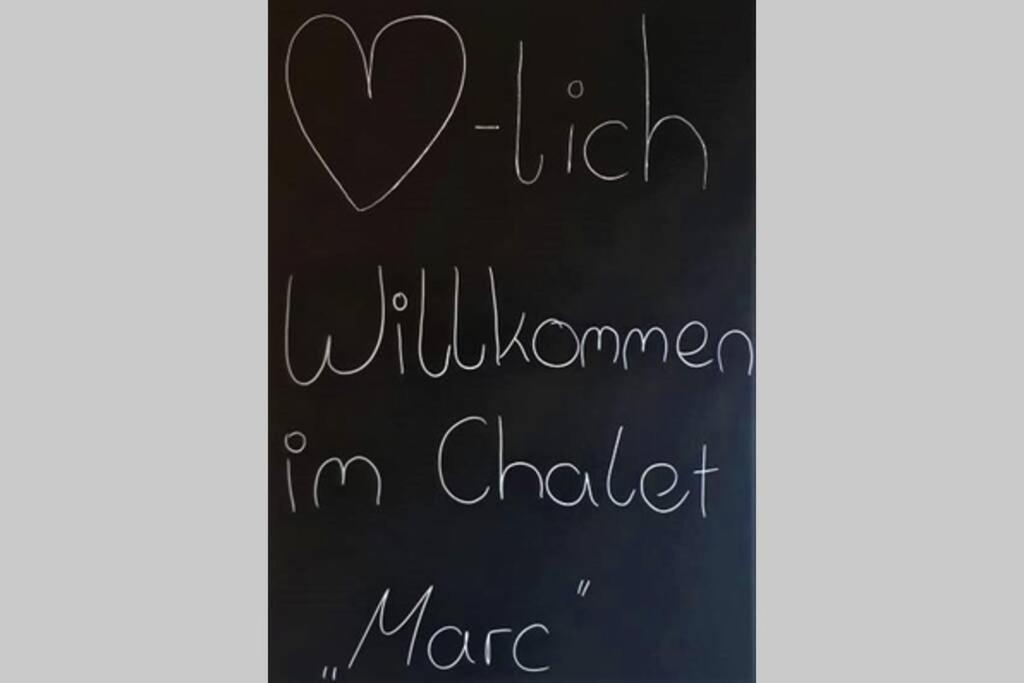 ♡-lich
Willkommen
im Chalet
„Marc"